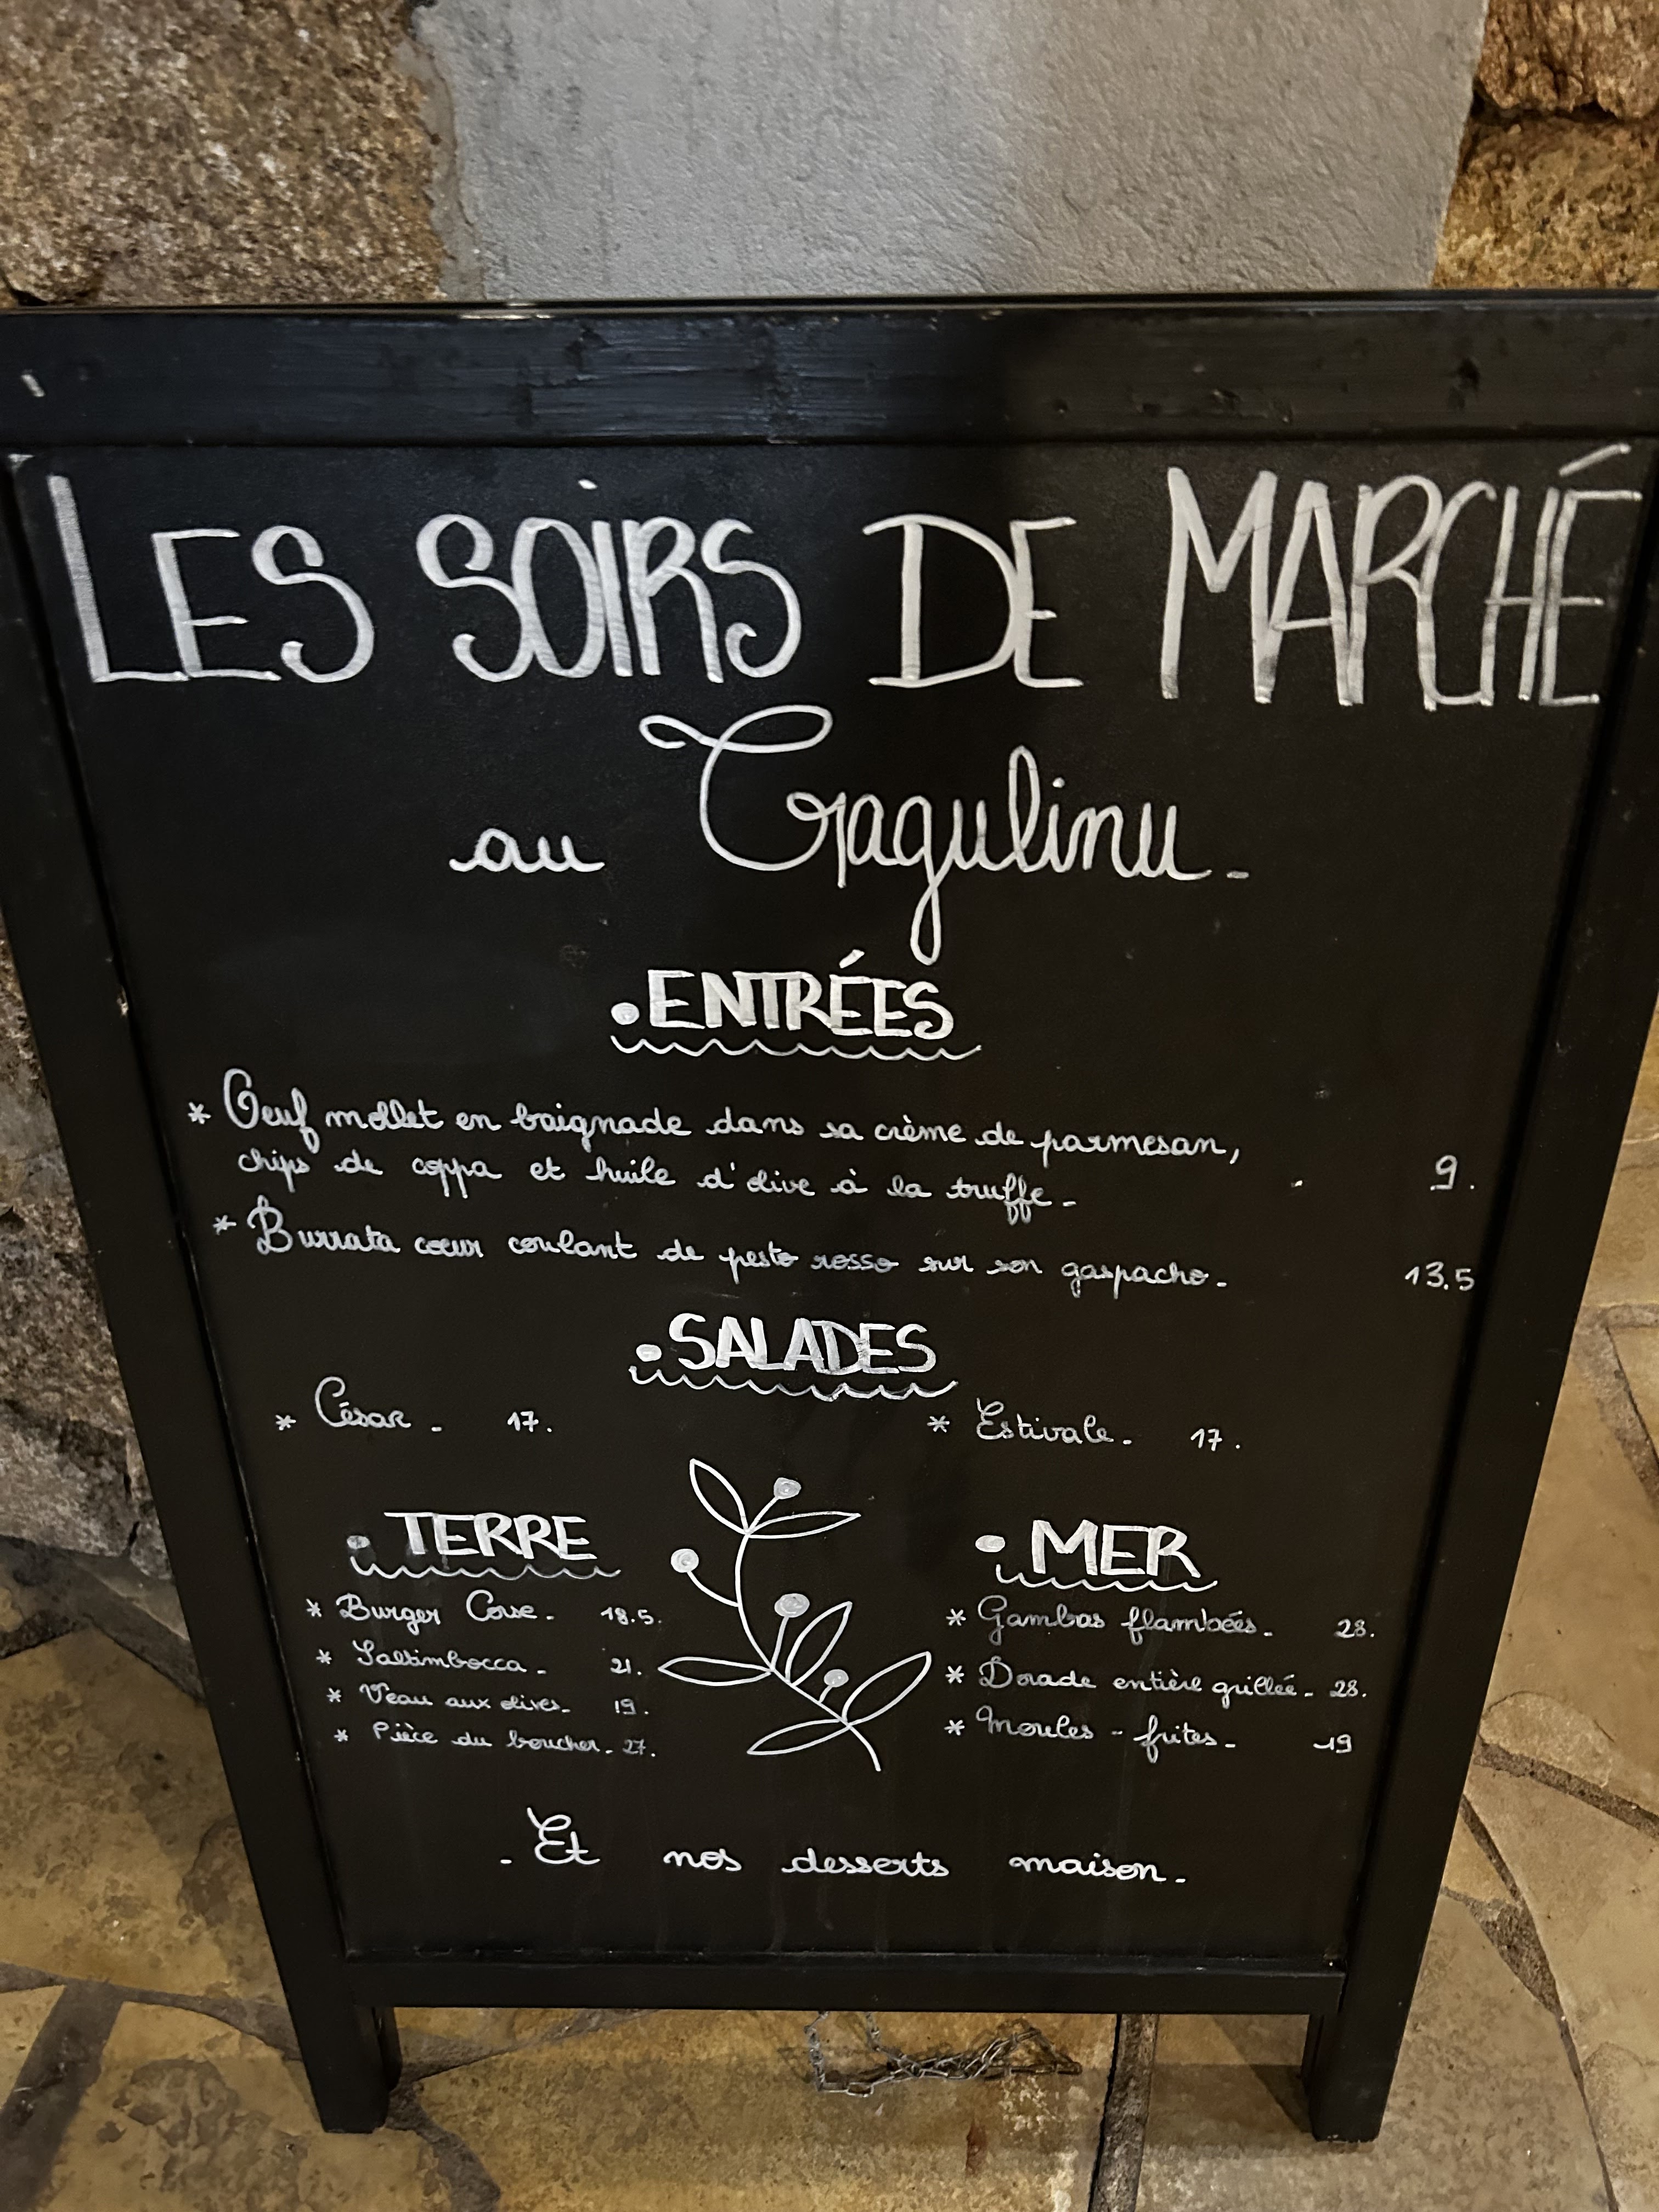 LES SOIRS DE MARCHÉ
au Tragulinu -
• ENTRÉES
* Oeuf mollet en baignade dans sa crème de parmesan,
chips de coppa et huile d'olive à la truffe - 9.
* Burrata coeur coulant de pesto rosso sur son gaspacho - 13.5
• SALADES
* César - 17.
* Estivale - 17.
• TERRE
* Burger Corse - 18.5.
* Saltimbocca - 21.
* Veau aux olives - 19.
* Pièce du boucher - 27.
• MER
* Gambas flambées - 28.
* Dorade entière grillée - 28.
* Moules - frites - 19
- Et nos desserts maison -